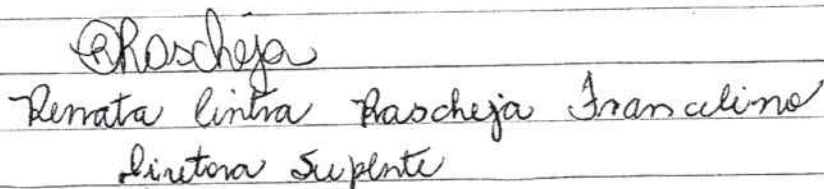 Rascheja
Renata Cintra Rascheja Francelino
Diretora Suplente